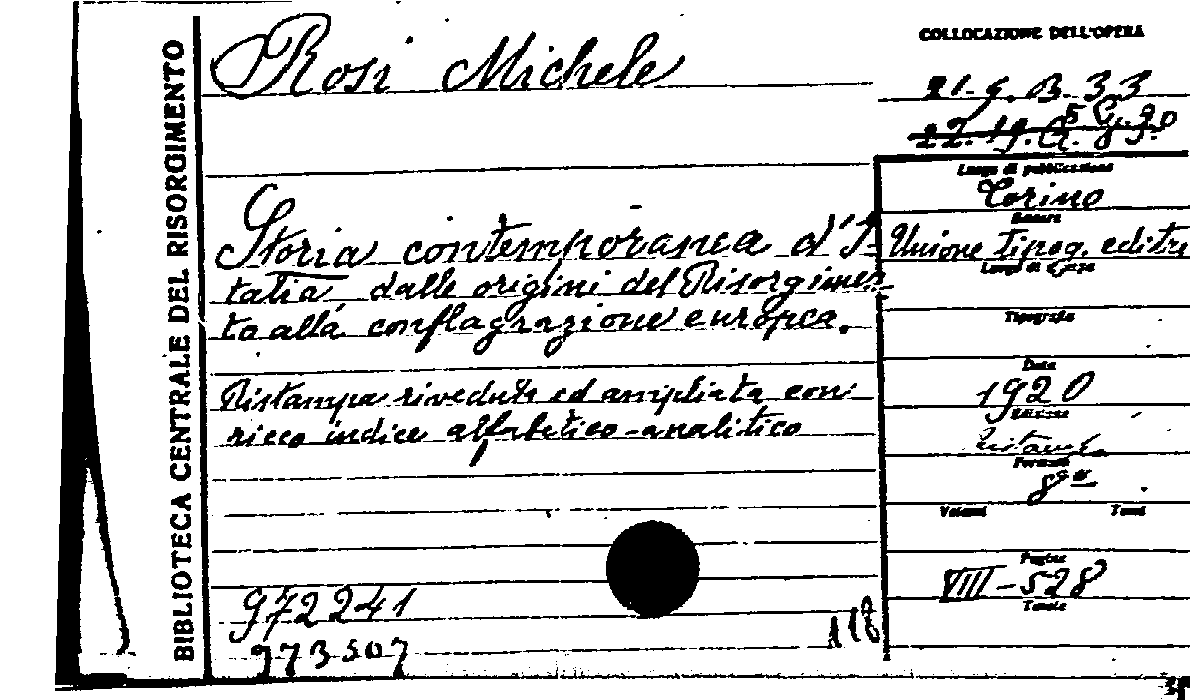 BIBLIOTECA CENTRALE DEL RISORGIMENTO
Rosi Michele
Storia contemporanea d'I-
talia, dalle origini del Risorgimen-
to alla conflagrazione europea.
Ristampa riveduta ed ampliata con
ricco indice alfabetico-analitico
972241
973507
118
COLLOCAZIONE DELL'OPERA
21. 9. B. 33
Luogo di pubblicazione
Torino
Editore
Unione tipog. editr
Luogo di stampa
Tipografia
Data
1920
Edizione
Ristampa
Formato
8°
Volumi Tomi
Pagine
VIII - 528
Tavole